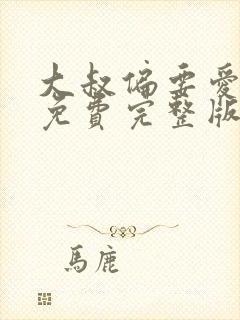 大叔偏要爱
免費完整版
馬鹿